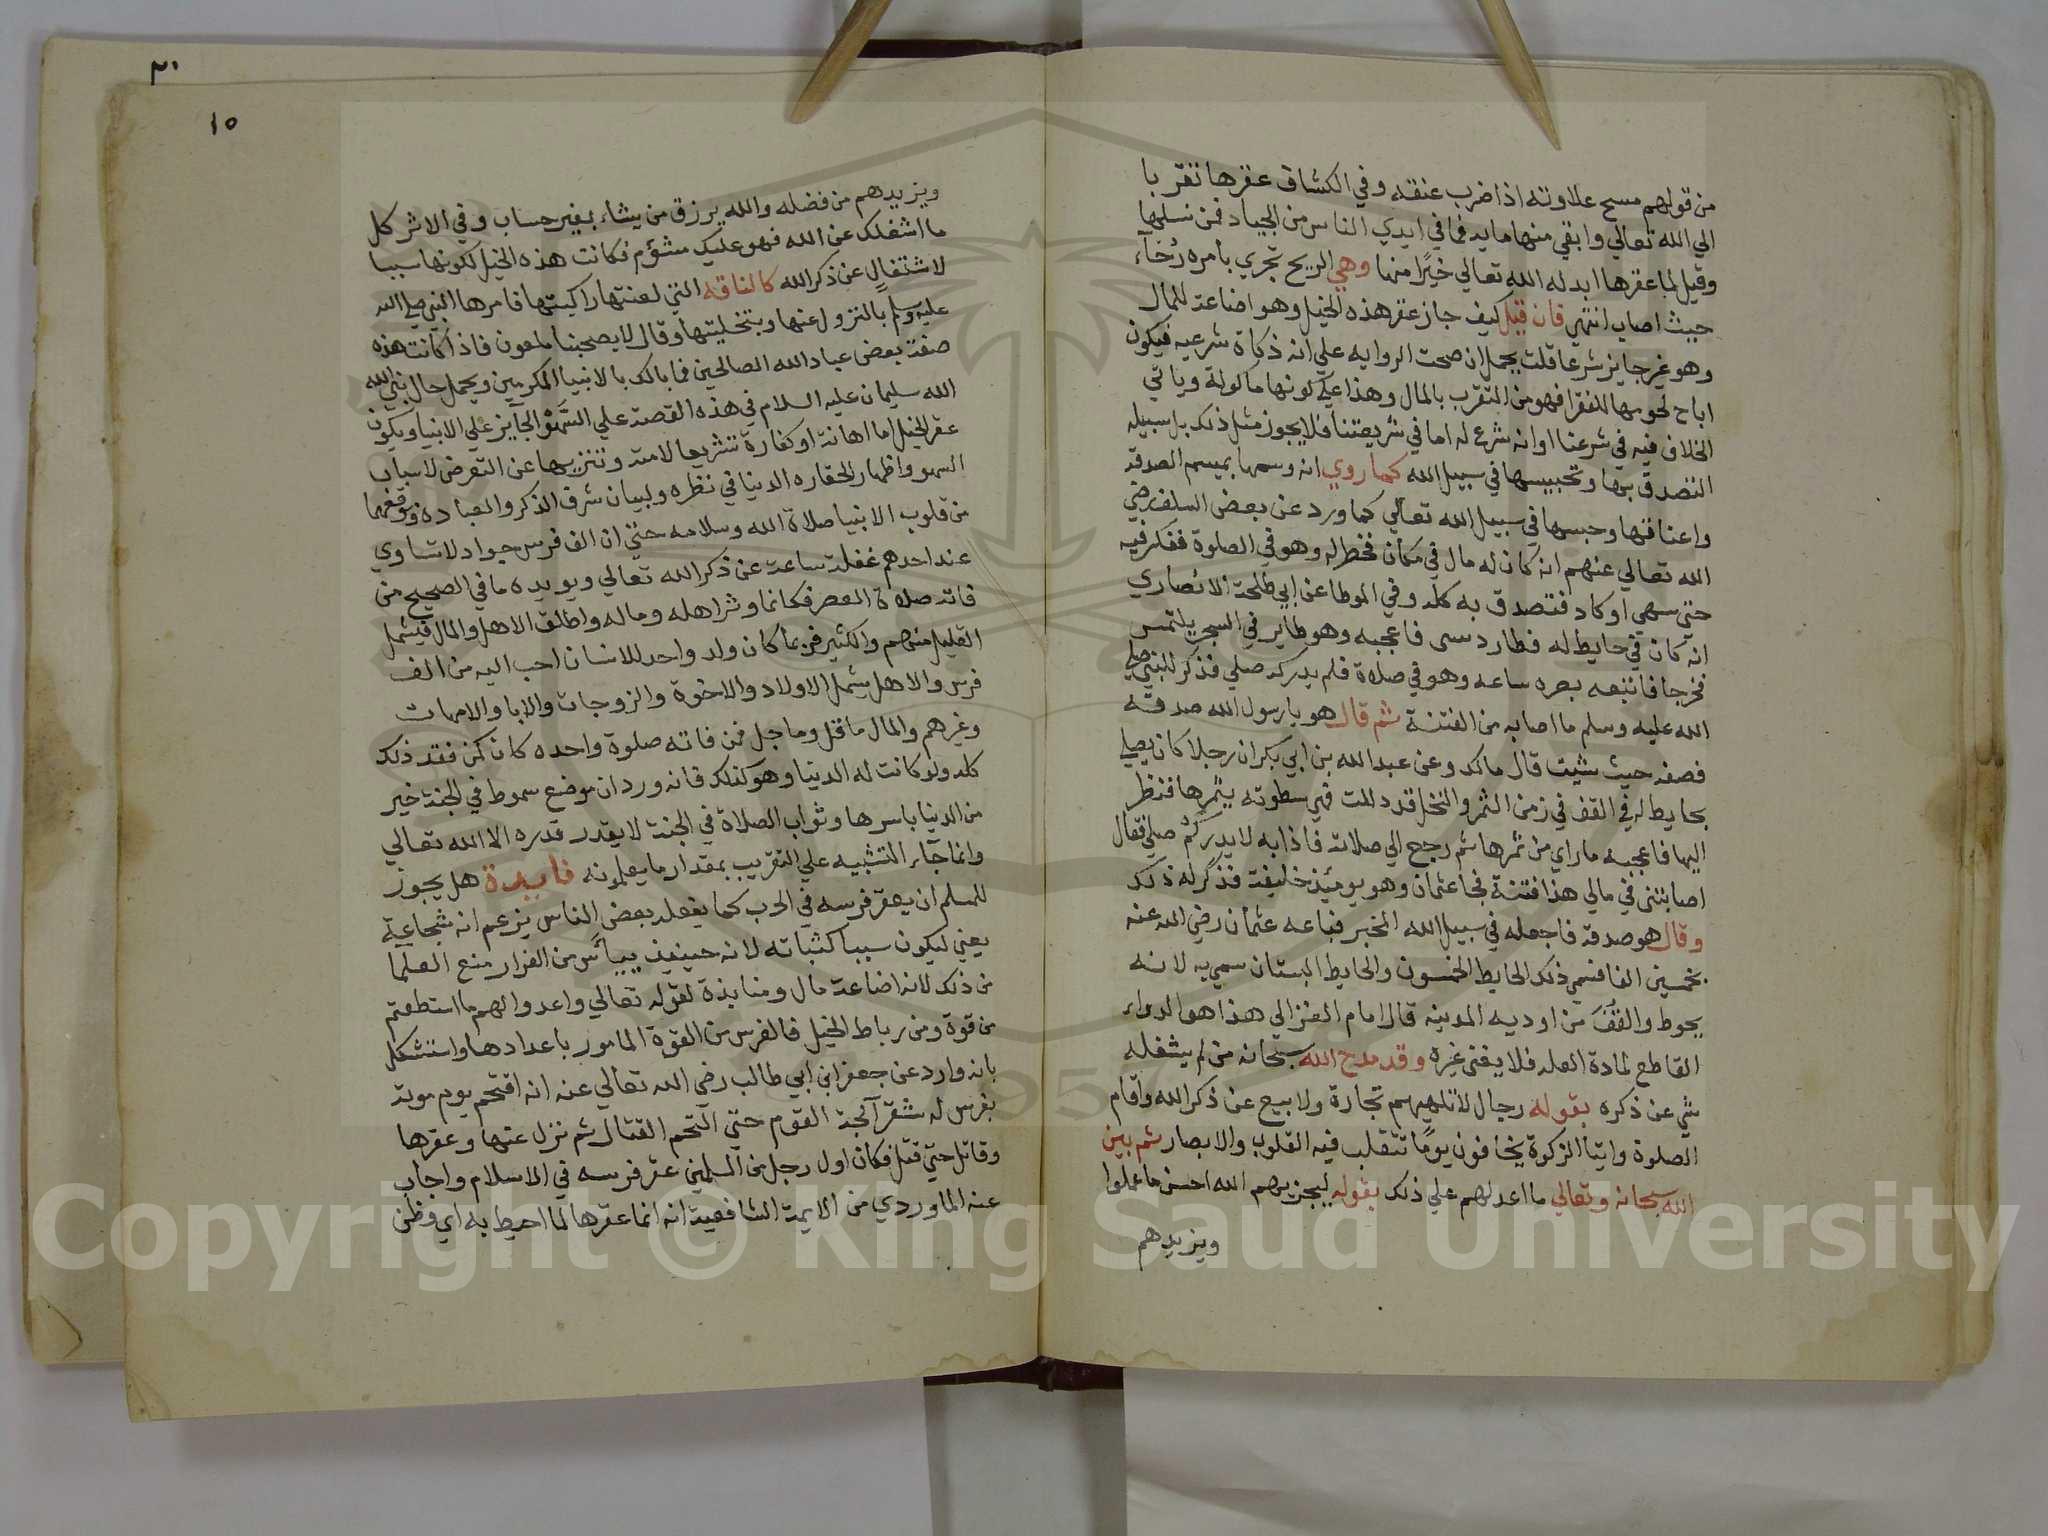 من قولهم مسح علاوته اذا ضرب عنقه وفي الكشاف عقرها تقربا
الي الله تعالي وابقي منها مايه فما في ايدي الناس من الجياد فمن نسلها
وقيل لما عقرها ابدله الله تعالي خيرًا منها وهي الريح تجري بامره رُخآء
حيث اصاب انتهي فان قيل كيف جاز عقر هذه الخيل وهو اضاعة للمال
وهو غير جايز شرعا قلت يحمل ان صحت الروايه علي انه ذكاة شرعيه فيكون
اباح لحومها للفقرا فهو من التقرب بالمال وهذا علي كونها ماكولة وياتي
الخلاف فيه في شرعنا او انه شرع له اما في شريعتنا فلا يجوز مثل ذلك بل سبيله
التصدق بها وتحبيسها في سبيل الله كما روي انه وسمها بميسم الصدقه
واعناقها وحبسها في سبيل الله تعالي كما ورد عن بعض السلف رضي
الله تعالي عنهم انه كان له مال في مكان فخطر له وهو في الصلوة ففكر فيه
حتي سهي او كاد فتصدق به كله وفي الموطا عن ابي طلحة الانصاري
انه كان في حايط له فطار دبسى فاعجبه وهو طاير في السجر يلتمس
مخرجا فاتبعه بصره ساعه وهو في صلاة فلم يدر كم صلي فذكر للنبي صلي
الله عليه وسلم ما اصابه من الفتنة ثم قال هو يا رسول الله صدقه
فصفه حيث شيت قال مالك وعن عبد الله بن ابي بكر ان رجلا كان يصلي
بحايط له في القف في زمن الثمر والنخل قد دللت فهي سطوته بثمرها فنظر
اليها فاعجبه ما راي من ثمرها ثم رجع الي صلاته فاذا به لا يدر كم صلي فقال
اصابتني في مالي هذا فتنة فجا عثمان وهو يوميذ خليفة فذكر له ذلك
وقال هو صدقه فاجعله في سبيل الله الخبر فباعه عثمان رضي الله عنه
بخمسين الفا فسمي ذلك الحايط الخمسون والحايط البستان سمي به لانه
يحوط والقُفّ من اوديه المدينه قال امام الغزالي هذا هو الدواء
القاطع لمادة العله فلا يغني غيره وقد مدح الله سبحانه من لم يشغله
شي عن ذكره بقوله رجال لا تلهيهم تجارة ولا بيع عن ذكر الله واقام
الصلوة وايتا الزكوة يخافون يومًا تتقلب فيه القلوب والابصار ثم بين
الله سبحانه وتعالي ما اعد لهم علي ذلك بقوله ليجزيهم الله احسن ما عملوا
ويزيدهم
٢٠
١٥
ويزيدهم من فضله والله يرزق من يشاء بغير حساب وفي الاثر كل
ما اشغلك عن الله فهو عليك مشؤم فكانت هذه الخيل لكونها سببا
لاشتغالٍ عن ذكر الله كالناقه التي لعنتها راكبتها فامرها النبي صلي الله
عليه وسلم بالنزول عنها وبتخليتها وقال لا يصحبنا ملعون فاذا كانت هذه
صفة بعض عباد الله الصالحين فما بالك بالانبيا المكرمين ويحمل حال نبي الله
الله سليمان عليه السلام في هذه القصة علي السَّهْو الجآيز علي الانبيا ويكون
عقر الخيل اما اهانة او كفارة تشريعا لامته وتنزيها عن التعرض لاسباب
السهو واظهار لحقاره الدنيا في نظره ولبيان شرف الذكر والعباده ووقعهما
من قلوب الانبيا صلاة الله وسلامه حتي ان الف فرس جواد لا تساوي
عند احدهم غفلة ساعة عن ذكر الله تعالي ويويده ما في الصحيح من
فاته صلاة العصر فكانما وتر اهله وماله واطلق الاهل والمال فيشمل
القليل منهم والكثير فربما كان ولد واحد للانسان احب اليه من الف
فرس والاهل يشمل الاولاد والاخوة والزوجات والابا والامهات
وغيرهم والمال ما قل وما جل فمن فاته صلوة واحده كان كمن فقد ذلك
كله ولو كانت له الدنيا وهو كذلك فانه ورد ان موضع سموط في الجنة خير
من الدنيا باسرها وثواب الصلاة في الجنة لا يقدر قدره الا الله تعالي
وانما جآء التشبيه علي التقريب بمقدار ما يعلمونه فايدة هل يجوز
للمسلم ان يعقر فرسه في الحرب كما يفعله بعض الناس يزعم انه شجاعة
يعني ليكون سببا لثباته لانه حينيذ ييأس من الفرار منع العلما
من ذلك لانه اضاعة مال ومنابذة لقوله تعالي واعدوا لهم ما استطعتم
من قوة ومن رباط الخيل فالفرس من القوة المامور باعدادها واستشكل
بانه وارد عن جعفر ابن ابي طالب رضي الله تعالي عنه انه اقتحم يوم موتة
بفرس له شقرآ لجة القوم حتي التحم القتال ثم نزل عنها وعقرها
وقاتل حتي قتل فكان اول رجل من المسلمين عقر فرسه في الاسلام واجاب
عنه الماوردي من الايمة الشافعية انه انما عقرها لما احيط به اي وظن
Copyright © King Saud University
1957